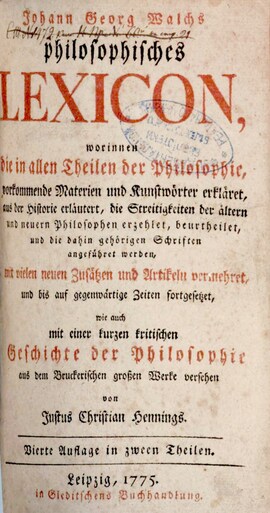 Johann Georg Walchs
philosophisches
LEXICON,
worinnen
die in allen Theilen der Philosophie,
vorkommende Materien und Kunstwörter erkläret,
aus der Historie erläutert, die Streitigkeiten der ältern
und neuern Philosophen erzehlet, beurtheilet,
und die dahin gehörigen Schriften
angeführet werden,
mit vielen neuen Zusätzen und Artikeln vermehret,
und bis auf gegenwärtige Zeiten fortgesetzet,
wie auch
mit einer kurzen kritischen
Geschichte der Philosophie
aus dem Bruckerischen großen Werke versehen
von
Justus Christian Hennings.
Vierte Auflage in zween Theilen.
Leipzig, 1775.
in Gleditschens Buchhandlung.